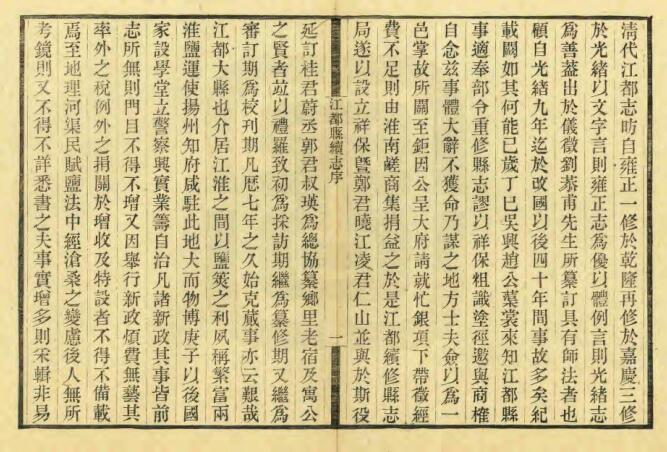 清代江都志昉自雍正一修於乾隆再修於嘉慶三修
於光緒以文字言則雍正志為優以體例言則光緒志
為善葢出於儀徵劉恭甫先生所纂訂具有師法者也
顧自光緒九年迄於改國以後四十年間事故多矣紀
載闕如其何能已歲丁巳吳興趙公蒓裳來知江都縣
事適奉部令重修縣志謬以祥保粗識塗徑邀與商榷
自念茲事體大辭不獲命乃謀之地方士夫僉以為一
邑掌故所關至鉅因公呈大府請就忙銀項下帶徵經
費不足則由淮南鹺商集捐益之於是江都續修縣志
局遂以設立祥保曁鄭君曉江凌君仁山並與於斯役
江都縣續志序
一
延訂桂君蔚丞郭君叔瑛為總協纂鄉里老宿及寓公
之賢者竝以禮羅致初為採訪期繼為纂修期又繼為
審訂期為校刊期凡歷七年之久始克蕆事亦云艱哉
江都大縣也介居江淮之間以鹽筴之利夙稱繁富兩
淮鹽運使揚州知府咸駐此地大而物博庚子以後國
家設學堂立警察興實業籌自治凡諸新政其事皆前
志所無則門目不得不增又因舉行新政煩費無藝其
率外之稅例外之捐關於增收及特設者不得不備載
焉至地理河渠民賦鹽法中經滄桑之變慮後人無所
考鏡則又不得不詳悉書之夫事實增多則采輯非易